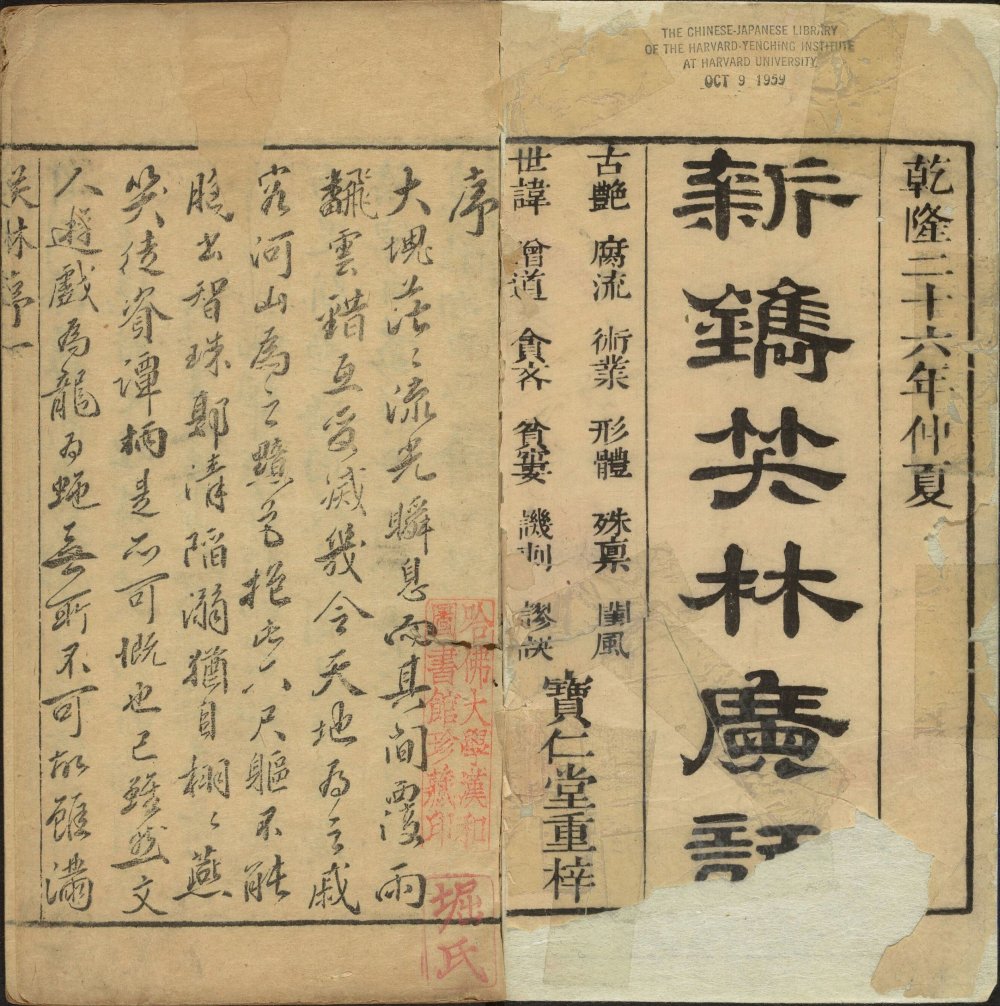 THE CHINESE-JAPANESE LIBRARY
OF THE HARVARD-YENCHING INSTITUTE
AT HARVARD UNIVERSITY
OCT 9 1959
乾隆二十六年仲夏
新鐫笑林廣記
古艷 腐流 術業 形體 殊禀 閨風
世諱 僧道 貪吝 貧窶 譏刺 謬誤
寶仁堂重梓
序
大塊茫〻流光瞬息而其間覆雨
翻雲錯互變滅幾令天地為之戚
容河山為之顰色抱此六尺軀不能
出智珠清陷溺猶自栩〻燕
笑徒資譚柄是亦可慨也已雖然文
人遊戲為龍為蛇無所不可故雖滿
笑林序一
哈佛大學漢和
圖書館珍藏印
堀氏